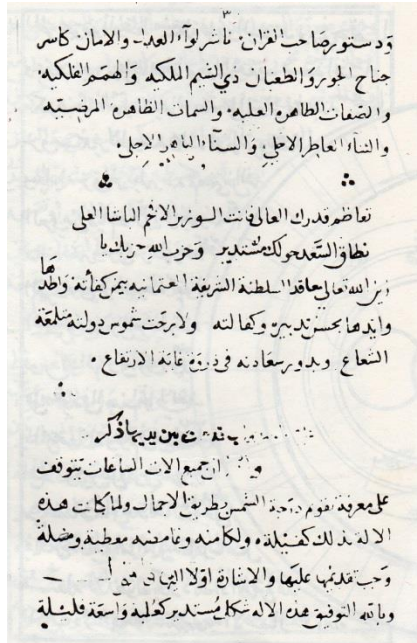 ٣
ودستور صاحب القران ناشر لوآء العدل والامان كاسر
جناح الجور والطغيان ذي الشيم الملكيه والهمم الفلكيه
والصفات الطاهره العليه والسمات الظاهره المرضيه
والثناء العاطر الاحلى والسناء الباهر الاجلى
تعاظم قدرك العالى فانت الوزير الاڤخم الباشا العلى
نطاق السعد حولك مستدير وحزب الله حزبك يا
الله تعالى معاقد السلطنة الشريفة العثمانيه بيمن كفائه واطدها
وايدها بحسن تدبيره وكفالته ولا برحت شموس دولته ملمعة
الشعاع وبدور سعادته فى ذروة غاية الارتفاع
بين يديها ذكر
ان جميع الات الساعات تتوقف
على معرفة تقويم درجة الشمس بطريق الاجمال ولما كانت هذه
الالة بذلك كفيله ولكامنه وغامضه معطيه
وجب تقدمتها عليها والاشارة اولا اليها
وبالله التوفيق هذه الاله شكل مستدير كعلبة واسعة قليلة